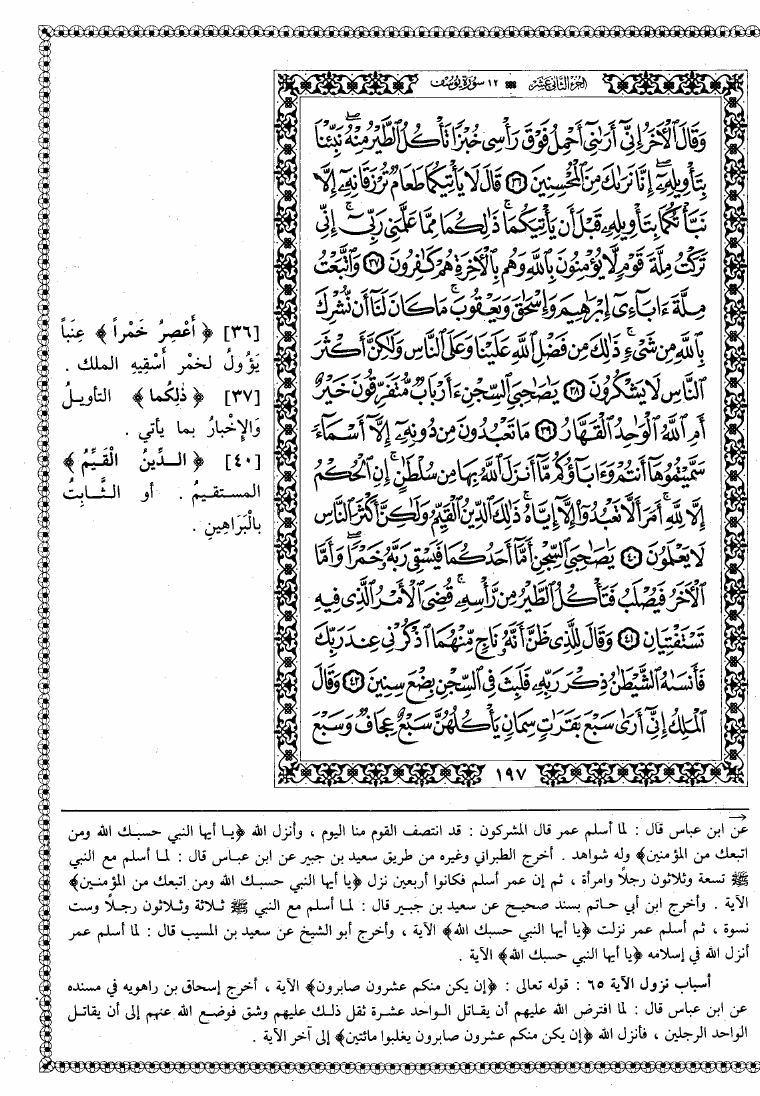 الجزء الثاني عشر ١٢ سورة يوسف
وَقَالَ ٱلْأٓخَرُ إِنِّيٓ أَرَىٰنِيٓ أَحْمِلُ فَوْقَ رَأْسِي خُبْزًا تَأْكُلُ ٱلطَّيْرُ مِنْهُ نَبِّئْنَا
بِتَأْوِيلِهِۦٓ إِنَّا نَرَىٰكَ مِنَ ٱلْمُحْسِنِينَ ٣٦ قَالَ لَا يَأْتِيكُمَا طَعَامٌ تُرْزَقَانِهِۦٓ إِلَّا
نَبَّأْتُكُمَا بِتَأْوِيلِهِۦ قَبْلَ أَن يَأْتِيَكُمَا ذَٰلِكُمَا مِمَّا عَلَّمَنِي رَبِّيٓ إِنِّي
تَرَكْتُ مِلَّةَ قَوْمٍ لَّا يُؤْمِنُونَ بِٱللَّهِ وَهُم بِٱلْأٓخِرَةِ هُمْ كَٰفِرُونَ ٣٧ وَٱتَّبَعْتُ
مِلَّةَ ءَابَآءِيٓ إِبْرَٰهِيمَ وَإِسْحَٰقَ وَيَعْقُوبَ مَا كَانَ لَنَآ أَن نُّشْرِكَ
بِٱللَّهِ مِن شَيْءٍ ذَٰلِكَ مِن فَضْلِ ٱللَّهِ عَلَيْنَا وَعَلَى ٱلنَّاسِ وَلَٰكِنَّ أَكْثَرَ
ٱلنَّاسِ لَا يَشْكُرُونَ ٣٨ يَٰصَىٰحِبَيِ ٱلسِّجْنِ ءَأَرْبَابٌ مُّتَفَرِّقُونَ خَيْرٌ
أَمِ ٱللَّهُ ٱلْوَٰحِدُ ٱلْقَهَّارُ ٣٩ مَا تَعْبُدُونَ مِن دُونِهِۦٓ إِلَّآ أَسْمَآءً
سَمَّيْتُمُوهَآ أَنتُمْ وَءَابَآؤُكُم مَّآ أَنزَلَ ٱللَّهُ بِهَا مِن سُلْطَٰنٍ إِنِ ٱلْحُكْمُ
إِلَّا لِلَّهِ أَمَرَ أَلَّا تَعْبُدُوٓا۟ إِلَّآ إِيَّاهُ ذَٰلِكَ ٱلدِّينُ ٱلْقَيِّمُ وَلَٰكِنَّ أَكْثَرَ ٱلنَّاسِ
لَا يَعْلَمُونَ ٤٠ يَٰصَىٰحِبَيِ ٱلسِّجْنِ أَمَّآ أَحَدُكُمَا فَيَسْقِي رَبَّهُۥ خَمْرًا وَأَمَّا
ٱلْأٓخَرُ فَيُصْلَبُ فَتَأْكُلُ ٱلطَّيْرُ مِن رَّأْسِهِۦ قُضِيَ ٱلْأَمْرُ ٱلَّذِي فِيهِ
تَسْتَفْتِيَانِ ٤١ وَقَالَ لِلَّذِي ظَنَّ أَنَّهُۥ نَاجٍ مِّنْهُمَا ٱذْكُرْنِي عِندَ رَبِّكَ
فَأَنسَىٰهُ ٱلشَّيْطَٰنُ ذِكْرَ رَبِّهِۦ فَلَبِثَ فِي ٱلسِّجْنِ بِضْعَ سِنِينَ ٤٢ وَقَالَ
ٱلْمَلِكُ إِنِّيٓ أَرَىٰ سَبْعَ بَقَرَٰتٍ سِمَانٍ يَأْكُلُهُنَّ سَبْعٌ عِجَافٌ وَسَبْعَ
١٩٧
[٣٦] ﴿ أَعْصِرُ خَمْراً ﴾ عِنَباً
يَؤُولُ لخمْرٍ أَسْقِيهِ الملك .
[٣٧] ﴿ ذَلِكُما ﴾ التأويلُ
وَالإِخْبارُ بما يأتي .
[٤٠] ﴿ الـدِّينُ الْقَيِّمُ ﴾
المستقيمُ . أو الثَّابِتُ
بالْبَرَاهِينِ .
عن ابن عباس قال : لما أسلم عمر قال المشركون : قد انتصف القوم منا اليوم ، وأنزل الله ﴿يا أيها النبي حسبك الله ومن
اتبعك من المؤمنين﴾ وله شواهد . أخرج الطبراني وغيره من طريق سعيد بن جبير عن ابن عباس قال : لما أسلم مع النبي
ﷺ تسعة وثلاثون رجلاً وامرأة ، ثم إن عمر أسلم فكانوا أربعين نزل ﴿يا أيها النبي حسبك الله ومن اتبعك من المؤمنين﴾
الآية . وأخرج ابن أبي حاتم بسند صحيح عن سعيد بن جبير قال : لما أسلم مع النبي ﷺ ثلاثة وثلاثون رجلاً وست
نسوة ، ثم أسلم عمر نزلت ﴿يا أيها النبي حسبك الله﴾ الآية ، وأخرج أبو الشيخ عن سعيد بن المسيب قال : لما أسلم عمر
أنزل الله في إسلامه ﴿يا أيها النبي حسبك الله﴾ الآية .
أسباب نزول الآية ٦٥ : قوله تعالى : ﴿إن يكن منكم عشرون صابرون﴾ الآية ، أخرج إسحاق بن راهويه في مسنده
عن ابن عباس قال : لما افترض الله عليهم أن يقاتل الواحد عشرة ثقل ذلك عليهم وشق فوضع الله عنهم إلى أن يقاتل
الواحد الرجلين ، فأنزل الله ﴿إن يكن منكم عشرون صابرون يغلبوا مائتين﴾ إلى آخر الآية .